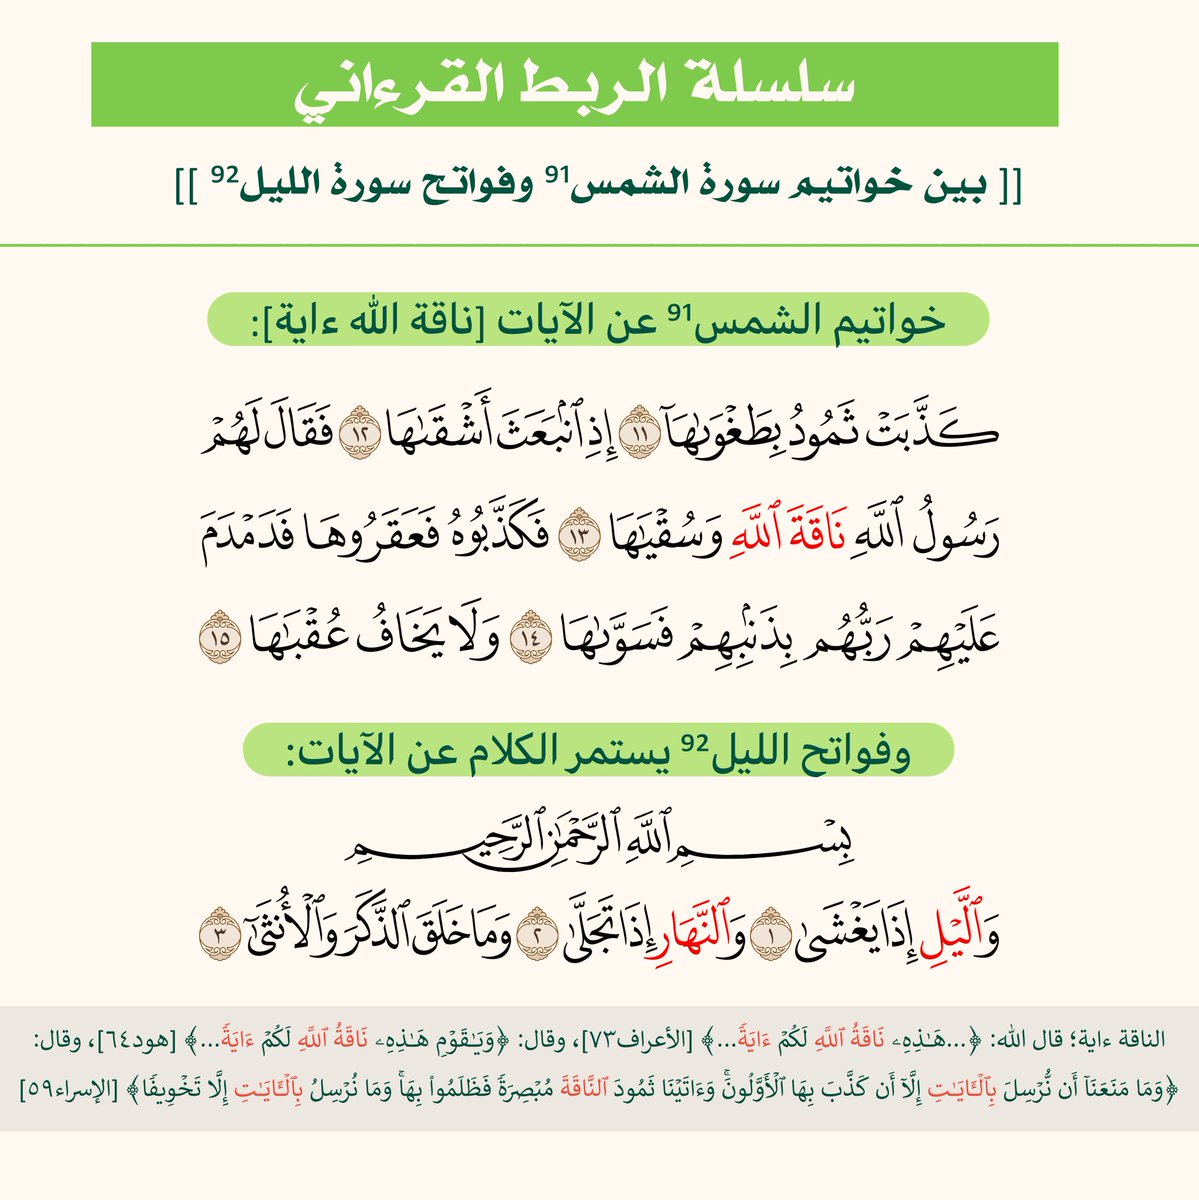 سلسلة الربط القرءاني
[[ بين خواتيم سورة الشمس⁹¹ وفواتح سورة الليل⁹² ]]
خواتيم الشمس⁹¹ عن الآيات [ناقة الله ءاية]:
كَذَّبَتْ ثَمُودُ بِطَغْوَىٰهَآ ١١ إِذِ ٱنۢبَعَثَ أَشْقَىٰهَا ١٢ فَقَالَ لَهُمْ
رَسُولُ ٱللَّهِ نَاقَةَ ٱللَّهِ وَسُقْيَٰهَا ١٣ فَكَذَّبُوهُ فَعَقَرُوهَا فَدَمْدَمَ
عَلَيْهِمْ رَبُّهُم بِذَنۢبِهِمْ فَسَوَّىٰهَا ١٤ وَلَا يَخَافُ عُقْبَٰهَا ١٥
وفواتح الليل⁹² يستمر الكلام عن الآيات:
بِسْمِ ٱللَّهِ ٱلرَّحْمَٰنِ ٱلرَّحِيمِ
وَٱلَّيْلِ إِذَا يَغْشَىٰ ١ وَٱلنَّهَارِ إِذَا تَجَلَّىٰ ٢ وَمَا خَلَقَ ٱلذَّكَرَ وَٱلْأُنثَىٰٓ ٣
الناقة ءاية؛ قال الله: ﴿...هَـٰذِهِۦ نَاقَةُ ٱللَّهِ لَكُمْ ءَايَةًۖ...﴾ [الأعراف٧٣]، وقال: ﴿وَيَـٰقَوْمِ هَـٰذِهِۦ نَاقَةُ ٱللَّهِ لَكُمْ ءَايَةًۖ...﴾ [هود٦٤]، وقال:
﴿وَمَا مَنَعَنَآ أَن نُّرْسِلَ بِٱلْـَٔايَـٰتِ إِلَّآ أَن كَذَّبَ بِهَا ٱلْأَوَّلُونَۚ وَءَاتَيْنَا ثَمُودَ ٱلنَّاقَةَ مُبْصِرَةً فَظَلَمُوا۟ بِهَاۚ وَمَا نُرْسِلُ بِٱلْـَٔايَـٰتِ إِلَّا تَخْوِيفًا﴾ [الإسراء٥٩]